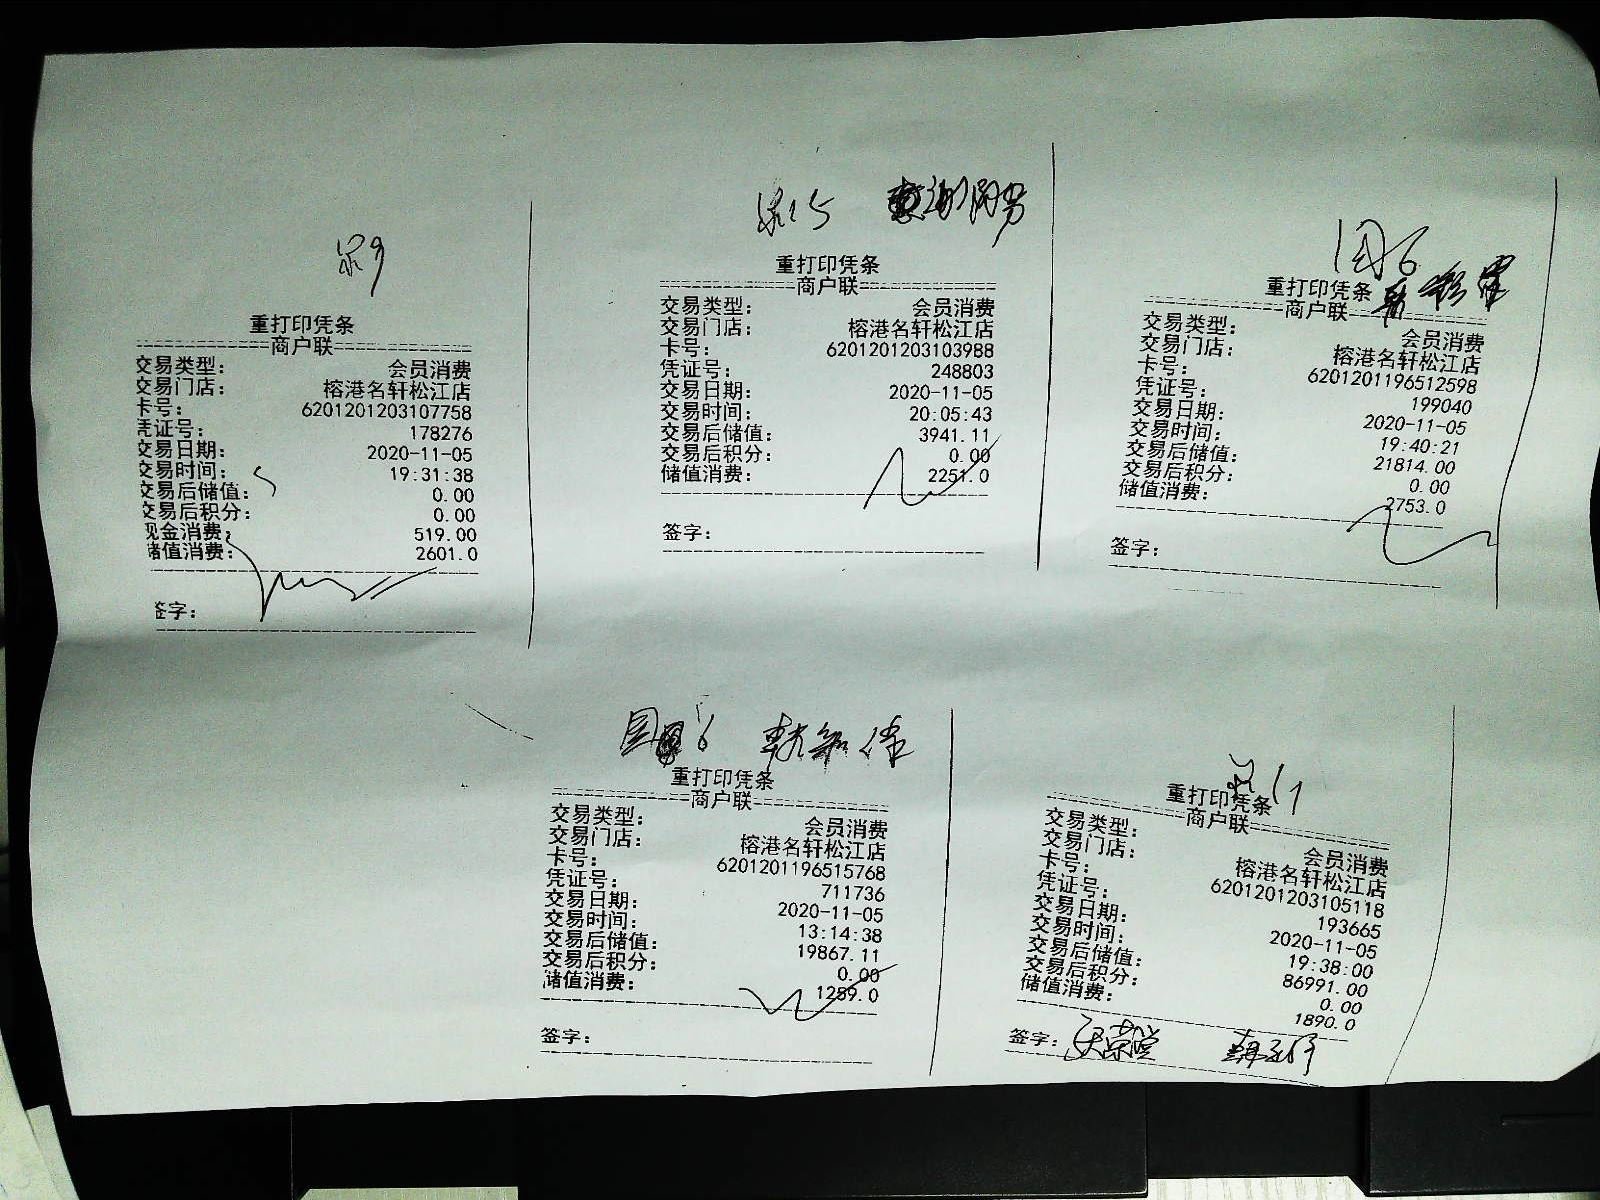 重打印凭条
商户联
交易类型： 会员消费
交易门店： 榕港名轩松江店
卡号： 6201201203107758
凭证号： 178276
交易日期： 2020-11-05
交易时间： 19:31:38
交易后储值： 0.00
交易后积分： 0.00
现金消费： 519.00
储值消费： 2601.0
签字：
重打印凭条
商户联
交易类型： 会员消费
交易门店： 榕港名轩松江店
卡号： 6201201203103988
凭证号： 248803
交易日期： 2020-11-05
交易时间： 20:05:43
交易后储值： 3941.11
交易后积分： 0.00
储值消费： 2251.0
签字：
重打印凭条
商户联
交易类型： 会员消费
交易门店： 榕港名轩松江店
卡号： 6201201196512598
凭证号： 199040
交易日期： 2020-11-05
交易时间： 19:40:21
交易后储值： 21814.00
交易后积分： 0.00
储值消费： 2753.0
签字：
重打印凭条
商户联
交易类型： 会员消费
交易门店： 榕港名轩松江店
卡号： 6201201196515768
凭证号： 711736
交易日期： 2020-11-05
交易时间： 13:14:38
交易后储值： 19867.11
交易后积分： 0.00
储值消费： 1259.0
签字：
重打印凭条
商户联
交易类型： 会员消费
交易门店： 榕港名轩松江店
卡号： 6201201203105118
凭证号： 193665
交易日期： 2020-11-05
交易时间： 19:38:00
交易后储值： 86991.00
交易后积分： 0.00
储值消费： 1890.0
签字：